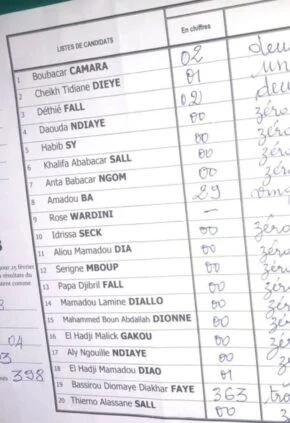 LISTES DE CANDIDATS En chiffres
1 Boubacar CAMARA 02 deu
2 Cheikh Tidiane DIEYE 01 un
3 Déthié FALL 02 deu
4 Daouda NDIAYE 00 zéro
5 Habib SY 00 zéro
6 Khalifa Ababacar SALL 00 zéro
7 Anta Babacar NGOM 00 zéro
8 Amadou BA 29 ving
9 Rose WARDINI —
10 Idrissa SECK 00 zéro
11 Aliou Mamadou DIA 00 zér
12 Serigne MBOUP 00 zér
13 Papa Djibril FALL 00 zér
14 Mamadou Lamine DIALLO 00 zér
15 Mahammed Boun Abdallah DIONNE 00 zér
16 El Hadji Malick GAKOU 00 zér
17 Aly Ngouille NDIAYE 00 zé
18 El Hadji Mamadou DIAO 01
19 Bassirou Diomaye Diakhar FAYE 363 tro
20 Thierno Alassane SALL 00
pour 25 février
résultats du
04
398